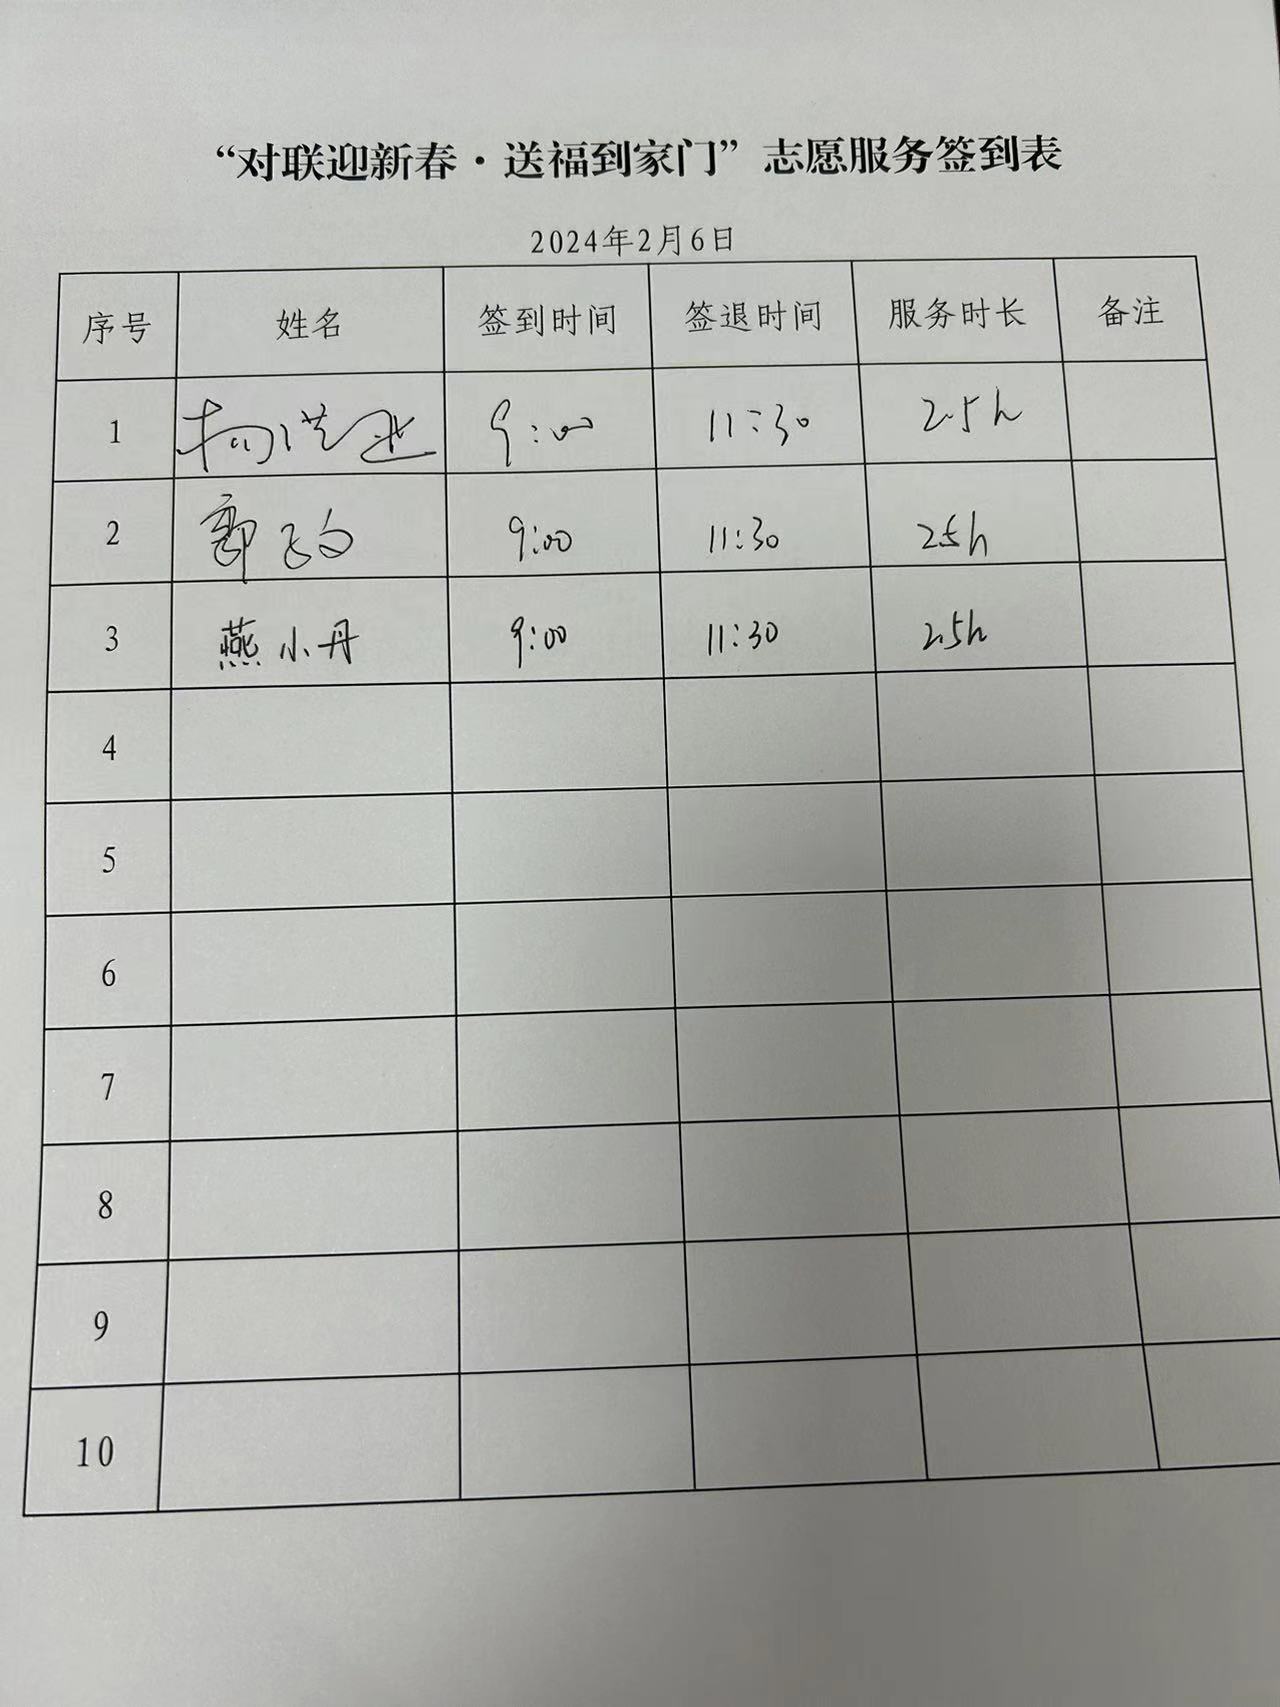 “对联迎新春·送福到家门”志愿服务签到表
2024年2月6日
序号 姓名 签到时间 签退时间 服务时长 备注
1 9:00 11:30 2.5h
2 郭 9:00 11:30 2.5h
3 燕小丹 9:00 11:30 2.5h
4
5
6
7
8
9
10